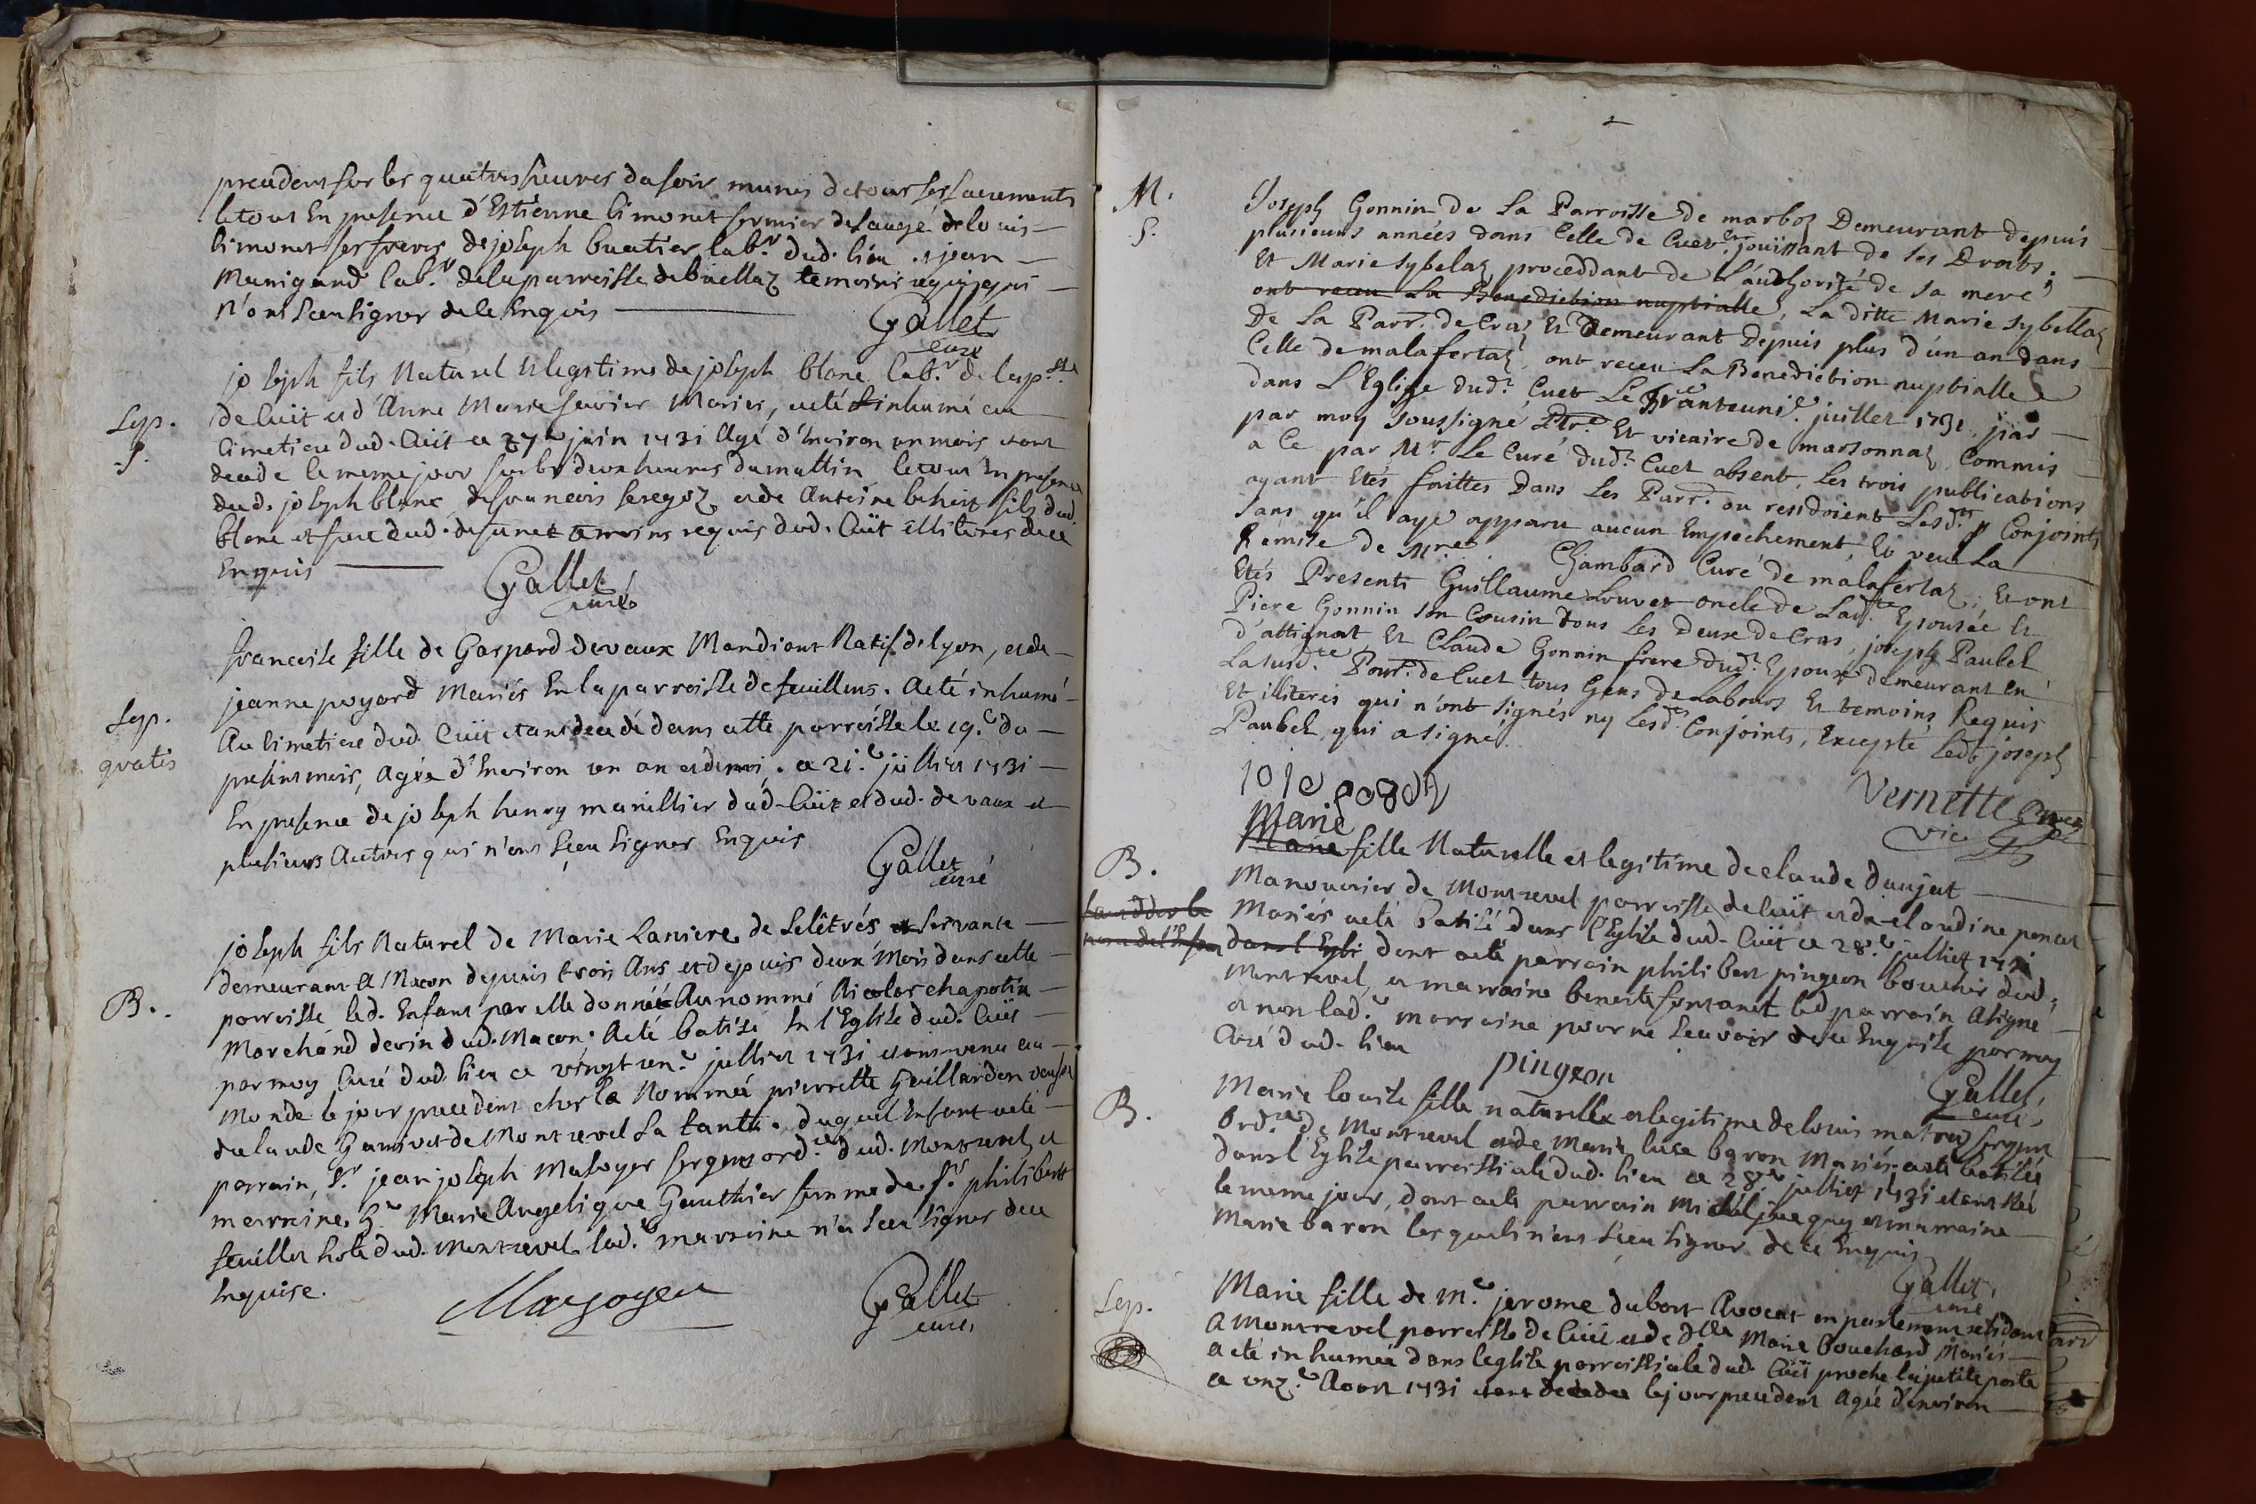 precedent sur les quatres heures du soir munis de tous ses sacrements
le tout En presence d'Estienne limonet fermier de Saugé de louis
limonet ses freres de joseph buatier lab.r dud. lieu et jean
Manigand lab.r de la parroisse de viellaz temoins requis qui
n'ont sceu signer de ce Enquis
Gallet
curé
Sep.
.f.
joseph fils Naturel et legitime de joseph blanc lab.r de la p.sse
de Cuit et d'Anne Marie Mariés, a eté inhumé au
Cimetiere dud. Cuit ce 27e juin 1731 Agé d'Environ un mois etant
decedé le meme jour sur les deux heures du mattin le tout En presence
dud. joseph blanc de francois et de Antoine fils dud.
blanc et frere dud. defunct temoins requis dud. Cuit illiteres de ce
Enquis
Gallet
curé
Sep.
gratis
francoise fille de Gaspard devaux Mandiant Natif de lyon, et de
jeanne poyard Mariés En la parroisse de feuillens. A eté inhumé
Au Cimetiere dud. Cuit etant decedé dans cette parroisse le 19e du
present mois, Agée d'Environ un an et demi. ce 21e juillet 1731
En presence de joseph henry marillier dud. Cuit et dud. devaux et
plusieurs Autres qui n'ont sceu signer Enquis
Gallet
curé
B.
joseph fils Naturel de Marie Laniere de et servante
demeurant A Macon depuis trois Ans et depuis deux Mois dans cette
parroisse led. Enfant par elle donné Au nommé Nicolas chapotin
Marchand de vin dud. Macon. A eté batisé En l'Eglise dud. Cuit
par moy Curé dud. lieu ce vingt un.e juillet 1731 etant venu au
Monde le jour precedent chez la Nommée pierrette Guillardon veuve
de claude de Montrevel sa tante. duquel Enfant a eté
parrain, S.r jean joseph Masoyer sergent ord.re dud. Montrevel et
marraine, h.e Marie Angelique Gauthier femme de S.r philibert
feuillet hote dud. Montrevel. lad.e marraine n'a sceu signer de ce
Enquise.
Masoyer
Gallet
curé
M.
.f.
Joseph Gonnin de La Parroisse de marboz Demeurant depuis
plusieurs années dans Celle de Cuet jouissant de ses Droits.
Et Marie Sybelaz proceddant de L'authorité de sa mere,
ont receu La Benediction nuptialle, La ditte Marie Sybellaz
De La Parr. de Craz Et Demeurant Depuis plus d'un an dans
Celle de malafertaz, ont receu La Benediction nuptialle
dans L'Eglise dud.t Cuet Le trenteunie. juillet 1731 par
par moy soussigné Ptre Et vicaire de marsonnaz Commis
a Ce par Mr. Le Curé dud.t Cuet absent. Les trois publications
ayant Etés faittes Dans Les Parr. ou residoient Lesd.ts Conjoints
sans qu'il aye apparu aucun Empechement, Et veu La
Remise de Mre. Chambard Curé de malafertaz; Et ont
Etés Presents Guillaume Louvet oncle de Lad.te Epousée Et
Piere Gonnin son Cousin tous Les deux de Cras, joseph Paubel
d'attignat Et Claude Gonnin frere dud.t Epoux demeurant En
La susd.te Parr. de Cuet tous Gens de Labours Et temoins Requis
Et illiterés qui n'ont signés ny Lesd.ts Conjoints, Excepté Led.t joseph
Paubel qui a signé.
Vernette
vic
B.
Marie
Marie fille Naturelle et legitime de claude daujat
Manouvrier de Montrevel parroisse de Cuit et de claudine poncet
Mariés a eté batisé dans l'Eglise dud. Cuit ce 28e juillet 1731
dans l'Egli dont a eté parrain philibert pingeon boucher dud.
Montrevel, et marraine benoite fontanet led. parrain A signé
et non lad.e marraine pour ne sçavoir de ce Enquise par moy
Curé dud. lieu
pingeon
Gallet,
curé,
B.
Marie louise fille naturelle et legitime de louis matrey sergent
Ord.re de Montrevel et de Marie luce baron Mariés. a eté batisée
dans l'Eglise parroissiale dud. lieu ce 28e juillet 1731 etant Née
le meme jour, dont a eté parrain Michel jacquy et marraine
Marie baron lesquels n'ont sceu signer de ce Enquis
Gallet,
curé
Sep.
Marie fille de M.e jerome dubost Avocat en parlement residant
A Montrevel parroisse de Cuit et de d.lle Marie bouchard Mariés
a eté inhumée dans l'eglise parroissiale dud. Cuit proche la petite porte
ce onz.e Aoust 1731 etant decedée le jour precedent Agée d'environ